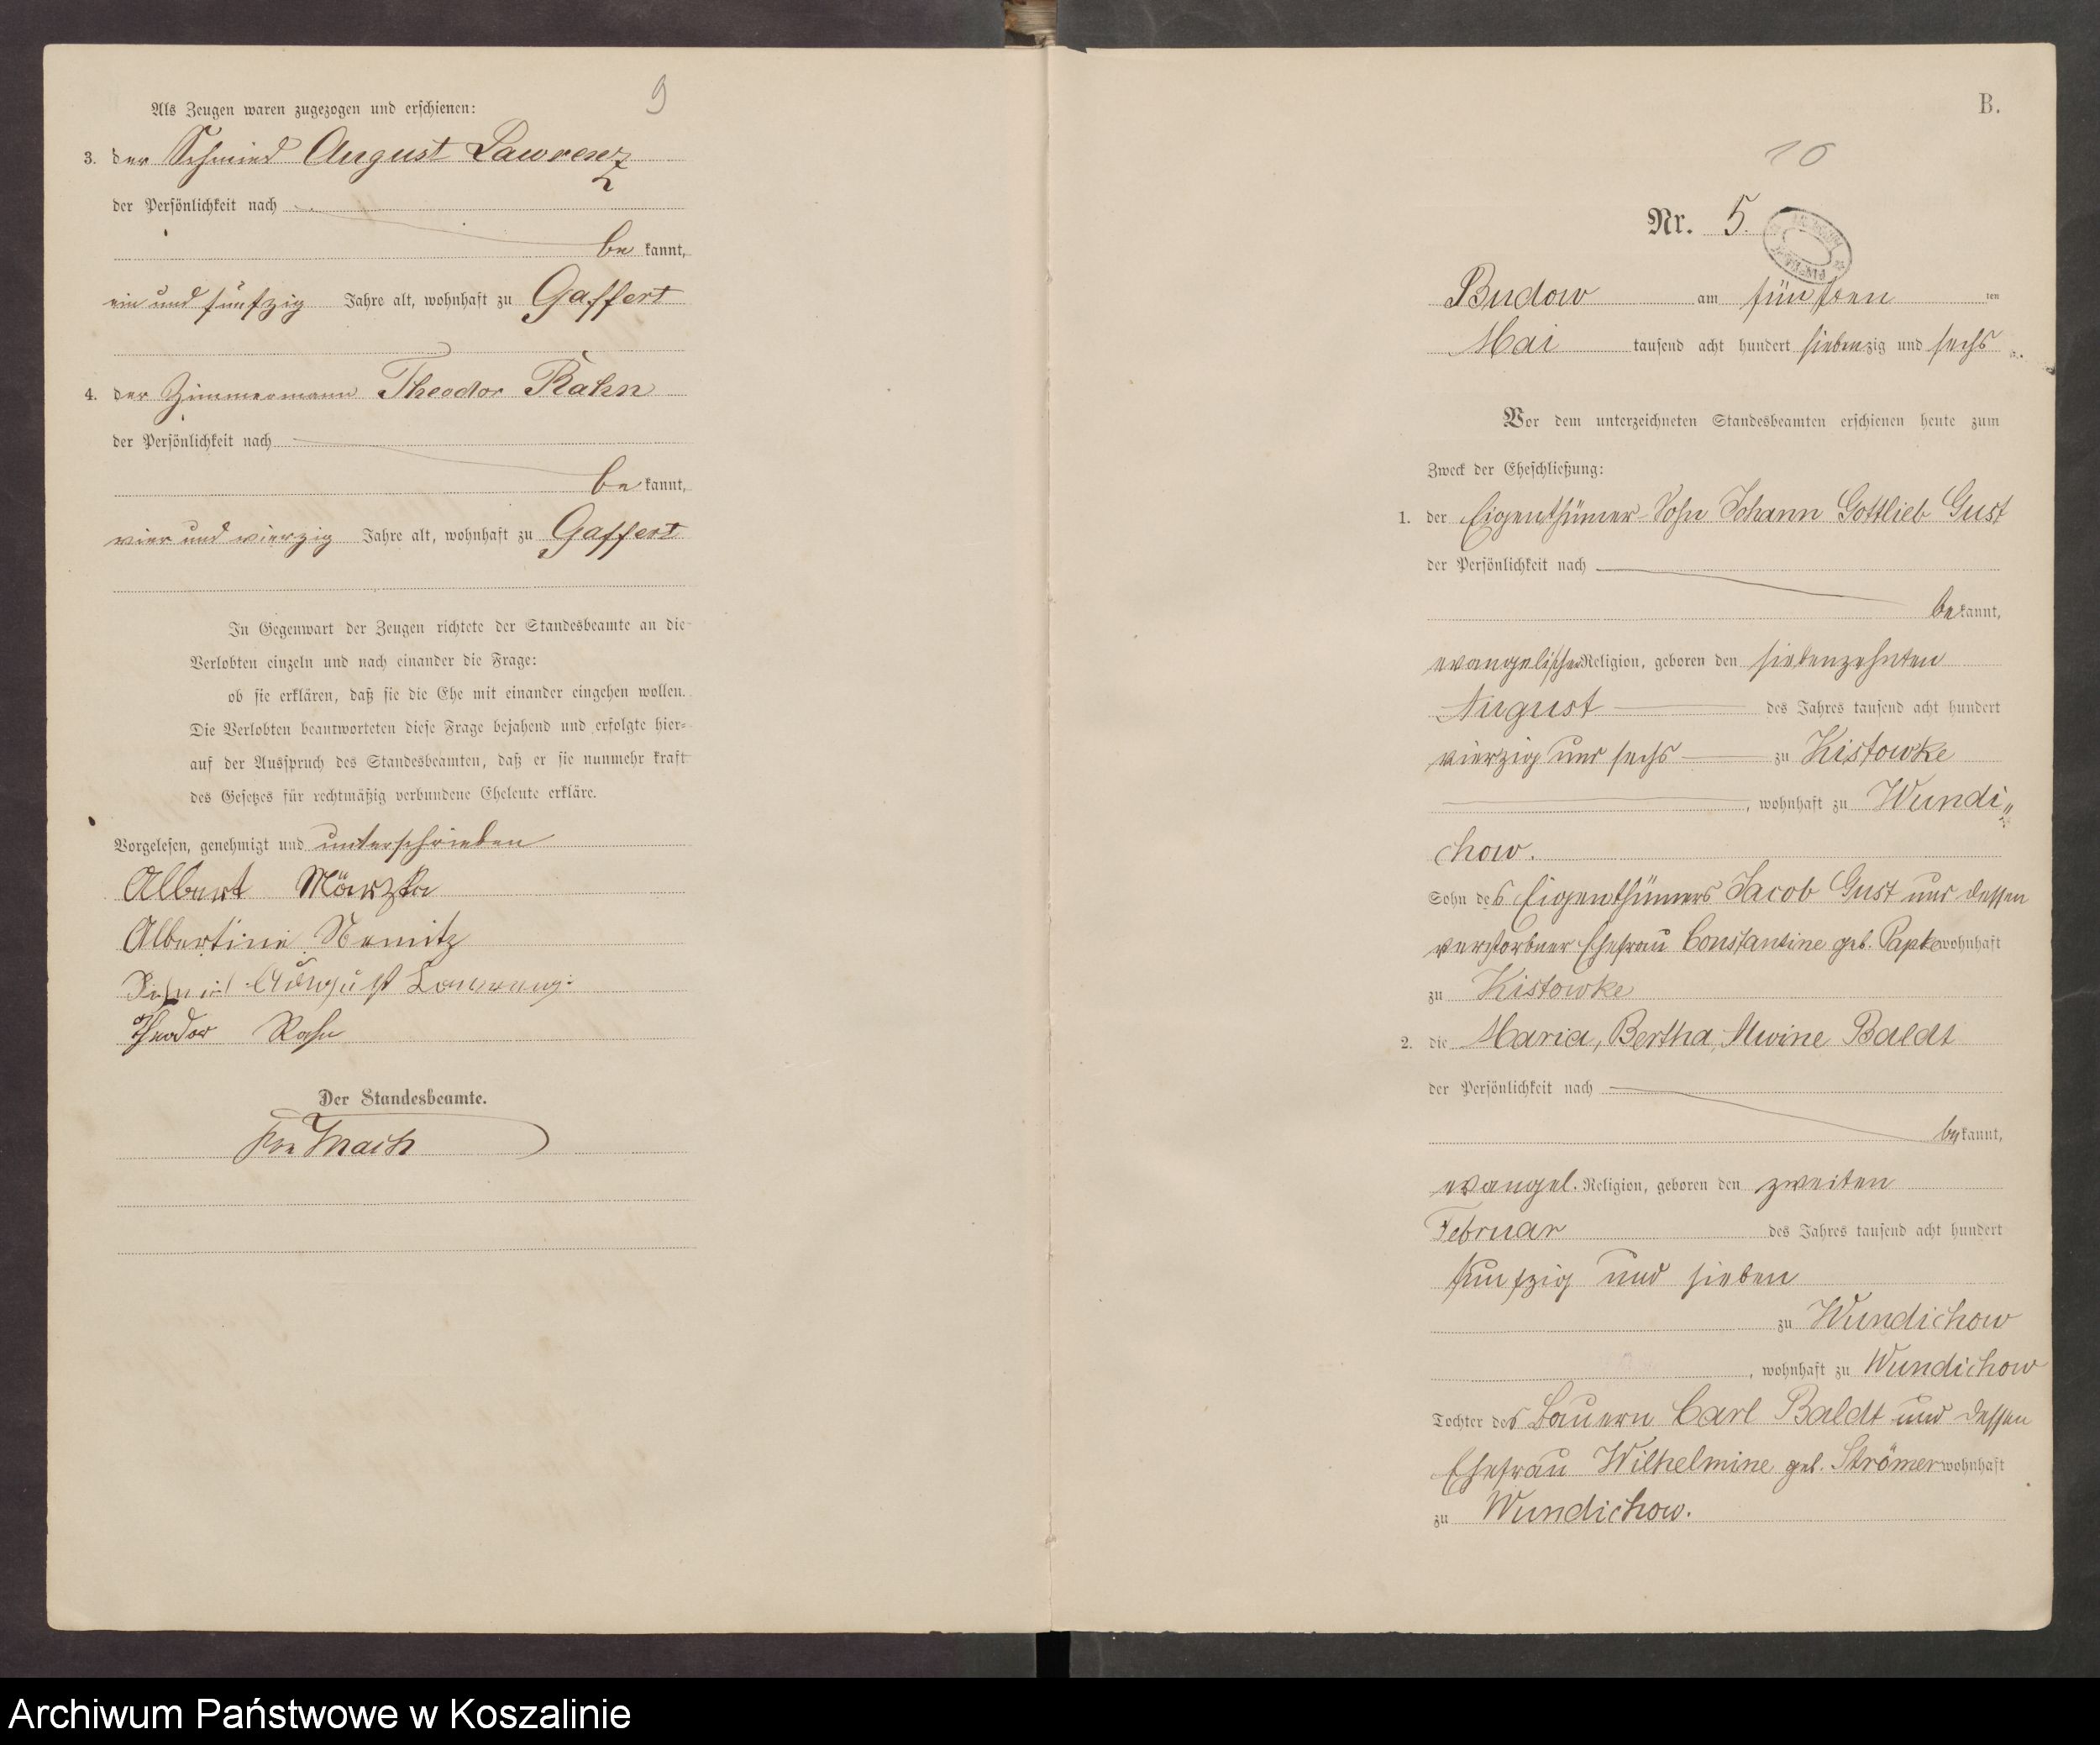 9
Als Zeugen waren zugezogen und erschienen:
3. der Schmied August Lawrenz
der Persönlichkeit nach
be kannt,
ein und fünfzig Jahre alt, wohnhaft zu Gaffert
4. der Zimmermann Theodor Rahn
der Persönlichkeit nach
be kannt,
vier und vierzig Jahre alt, wohnhaft zu Gaffert
In Gegenwart der Zeugen richtete der Standesbeamte an die
Verlobten einzeln und nach einander die Frage:
ob sie erklären, daß sie die Ehe mit einander eingehen wollen.
Die Verlobten beantworteten diese Frage bejahend und erfolgte hier=
auf der Ausspruch des Standesbeamten, daß er sie nunmehr kraft
des Gesetzes für rechtmäßig verbundene Eheleute erkläre.
Vorgelesen, genehmigt und unterschrieben
Albert
Albertine Nemitz
Schmied August
Theodor Rahn
Der Standesbeamte.
B.
10
Nr. 5.
Budow am fünften ten
Mai tausend acht hundert siebenzig und sechs
Vor dem unterzeichneten Standesbeamten erschienen heute zum
Zweck der Eheschließung:
1. der Eigenthümer-Sohn Johann Gottlieb Gust
der Persönlichkeit nach
be kannt,
evangelischer Religion, geboren den siebenzehnten
August des Jahres tausend acht hundert
vierzig und sechs zu Kistowke
, wohnhaft zu Wundi„
chow.
Sohn des Eigenthümers Jacob Gust und dessen
verstorbner Ehefrau Constantine geb. Papke wohnhaft
zu Kistowke
2. die Maria, Bertha, Alwine Baldt
der Persönlichkeit nach
be kannt,
evangel. Religion, geboren den zweiten
Februar des Jahres tausend acht hundert
fünfzig und sieben
zu Wundichow
, wohnhaft zu Wundichow
Tochter des Bauern Carl Baldt und dessen
Ehefrau Wilhelmine geb. Strömer wohnhaft
zu Wundichow.
Archiwum Państwowe w Koszalinie